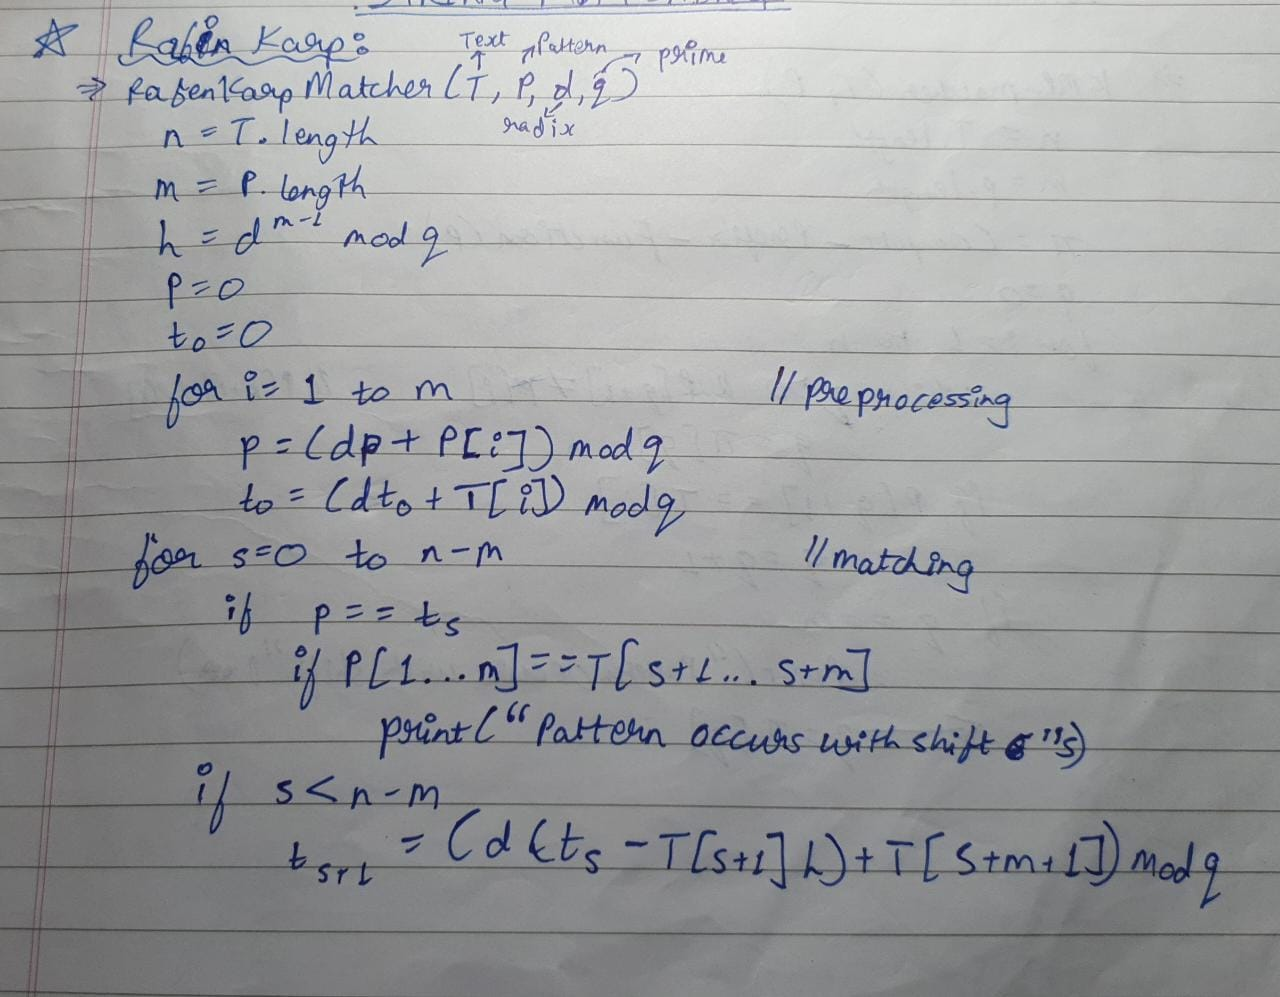 ☆ Rabin Karp:
Text Pattern prime
⇒ RabenKarp Matcher (T, P, d, q)
radix
n = T. length
m = P. length
h = d^m-1 mod q
P=0
t₀=0
for i= 1 to m //preprocessing
p = (dp + P[i]) mod q
t₀ = (dt₀ + T[i]) mod q
for s=0 to n-m //matching
if p == ts
if P[1...m]==T[s+1... s+m]
print(“Pattern occurs with shift ”s)
if s<n-m
ts+1 = (d(ts - T[s+1] h) + T[s+m+1]) mod q